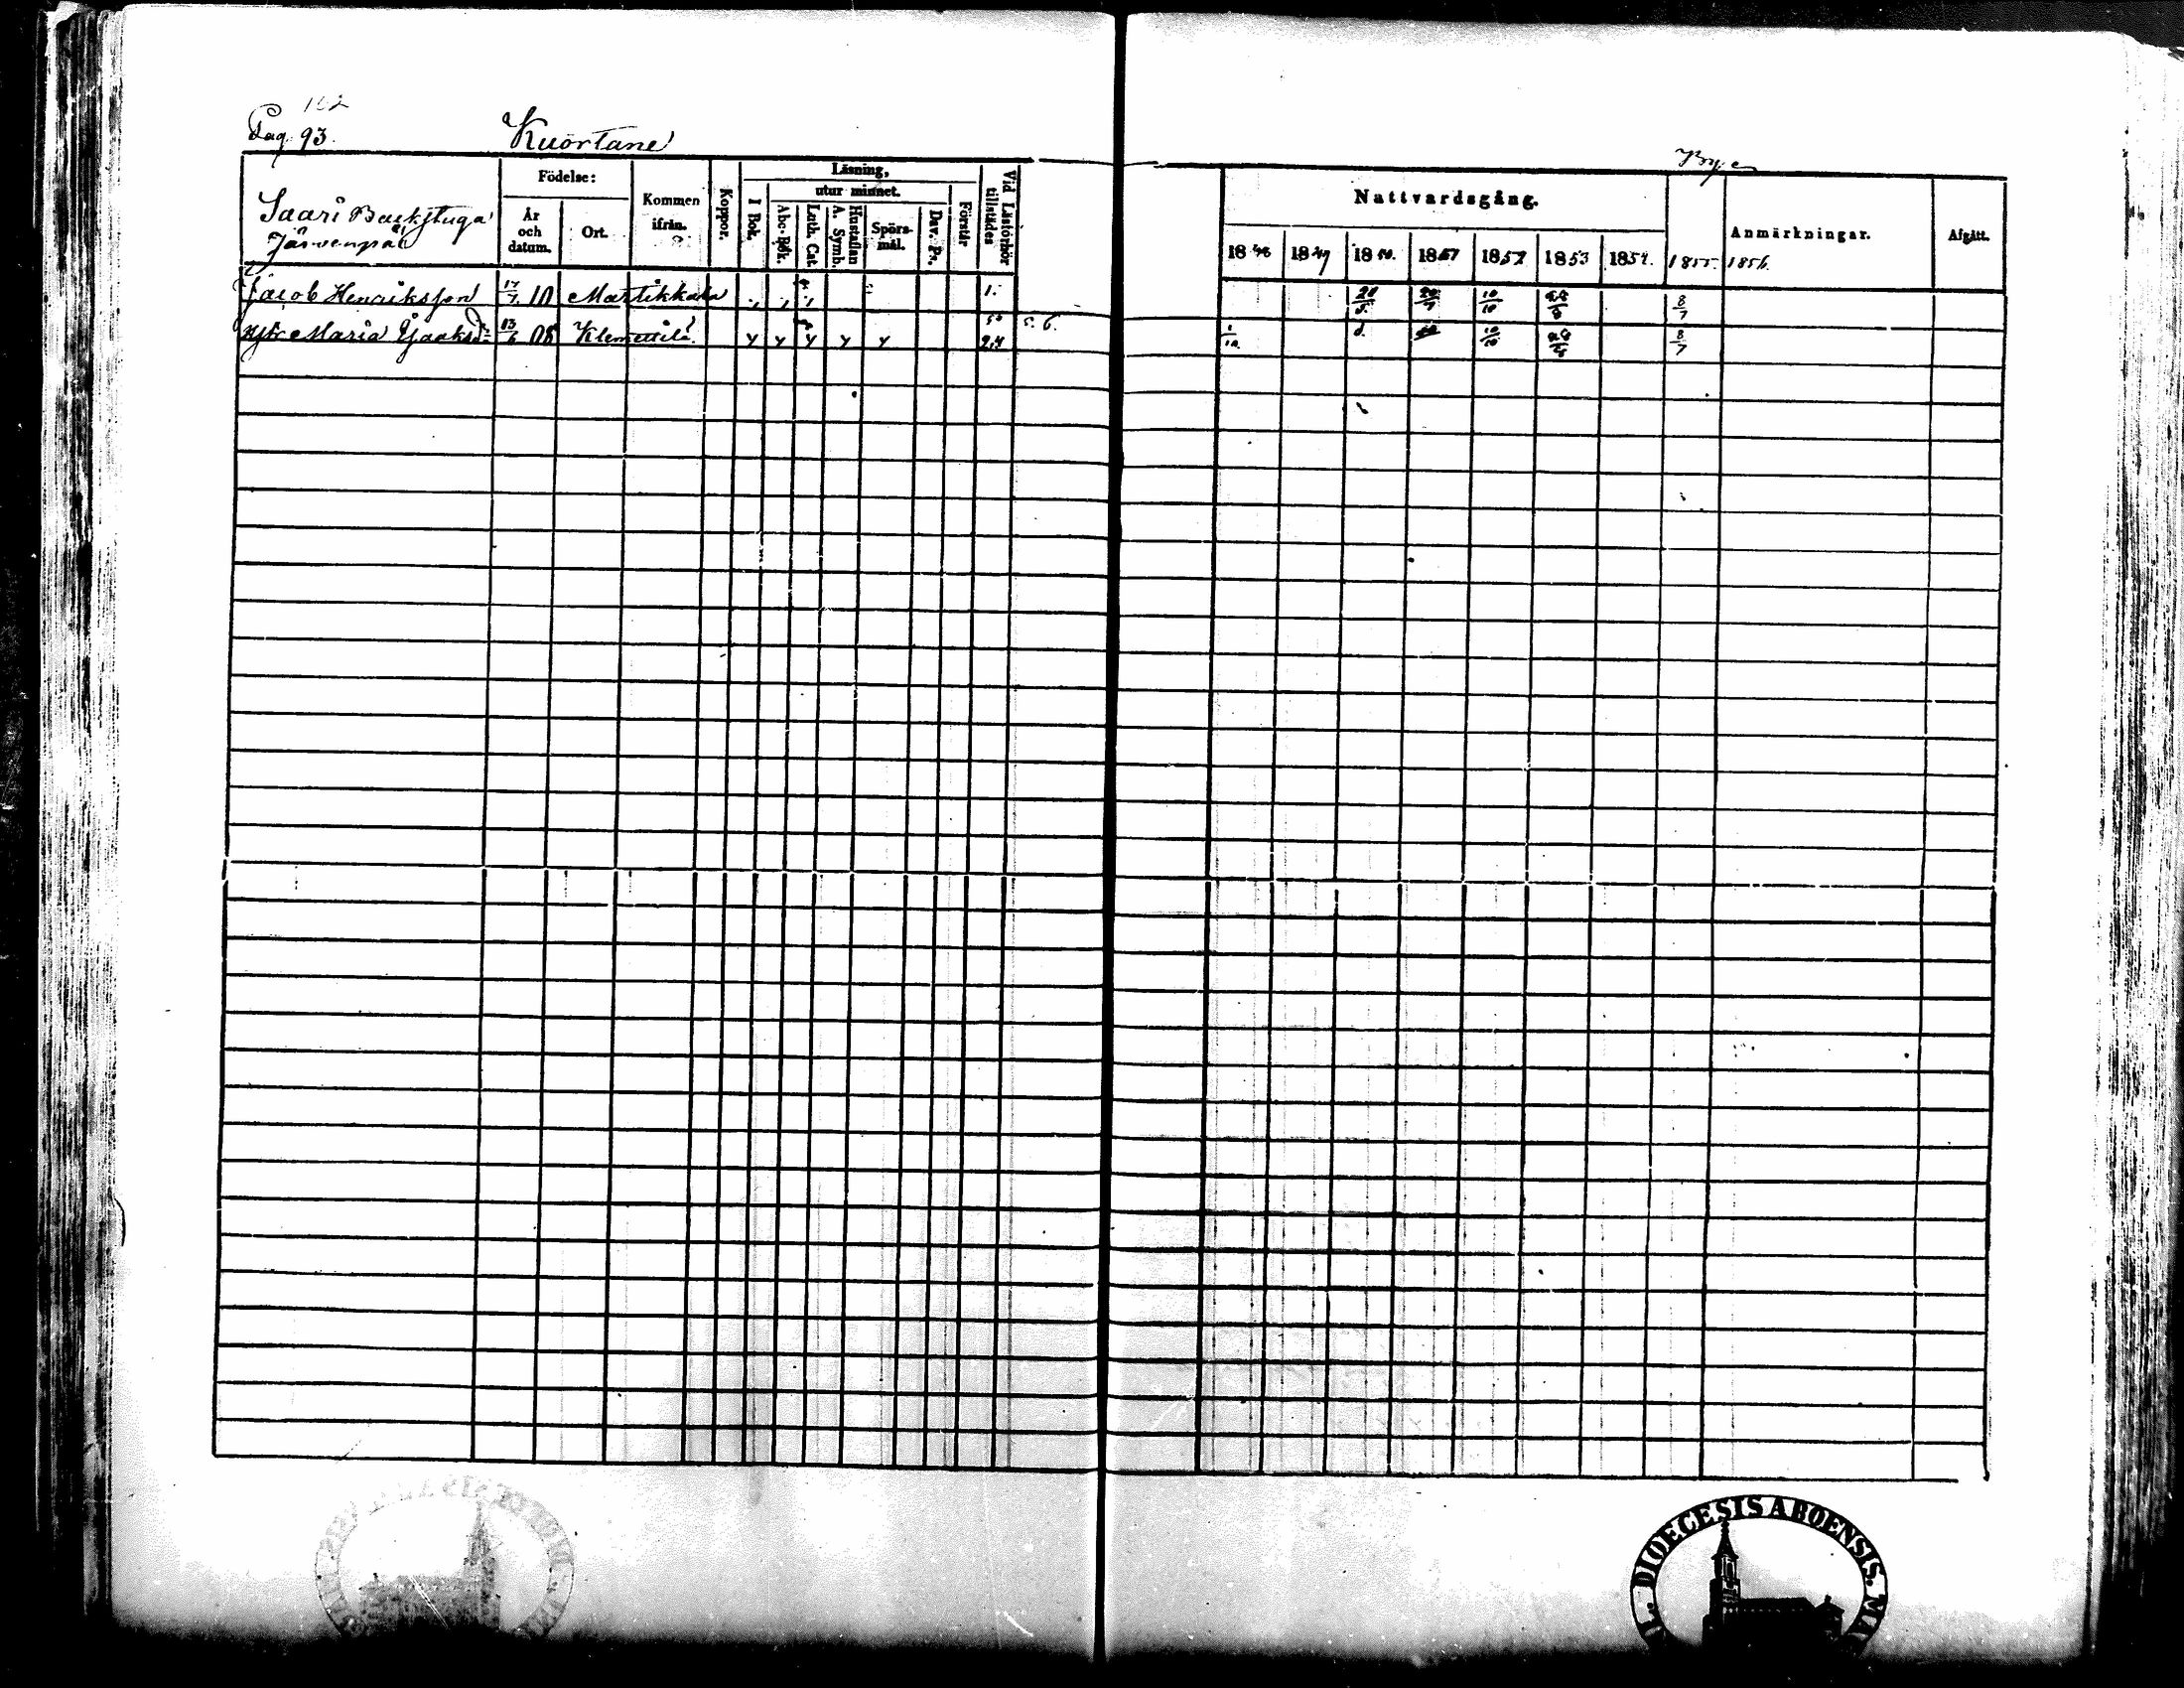 102
Pag. 93. Kuortane By
Saari Backstuga
Järvenpää
Födelse:
År och datum.
Ort.
Kommen ifrån.
Koppor.
Läsning,
I Bok.
utur minnet.
Abc-Bok.
Luth. Cat.
Hustaflan A. Symb.
Spörsmål.
Dav. Ps.
Förstår
Vid Läsförhör tillstädes
Nattvardsgång.
1848 1849 1850. 1851 1852 1853 1854. 1855. 1856.
Anmärkningar.
Afgått.
Jacob Henriksson 17/7 10 Martikkala 1. 20/7 10/10 8/7
Maria Jaaksdr 13/6 08 Klemettilä 5. 6. 1/10. 10/10 8/7
DIOECESIS ABOENSIS.